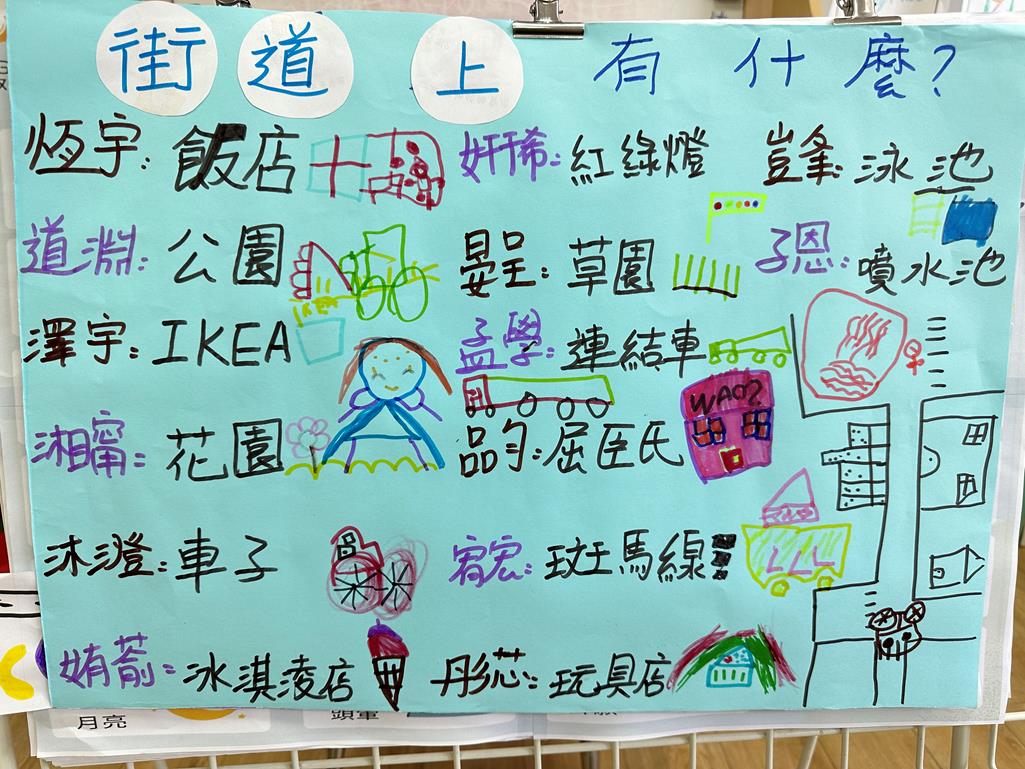 街道上有什麼?
恆宇: 飯店
妍希: 紅綠燈
豈夆: 泳池
道淵: 公園
晏呈: 草園
子恩: 噴水池
澤宇: IKEA
孟學: 連結車
湘甯: 花園
品勻: 屈臣氏
WAO?
沐澄: 車子
宥宏: 斑馬線
姷萮: 冰淇淩店
彤芯: 玩具店
月亮
頭暈